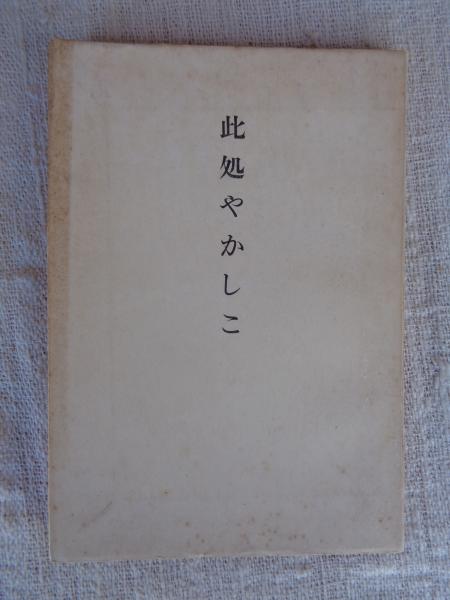 此処やかしこ